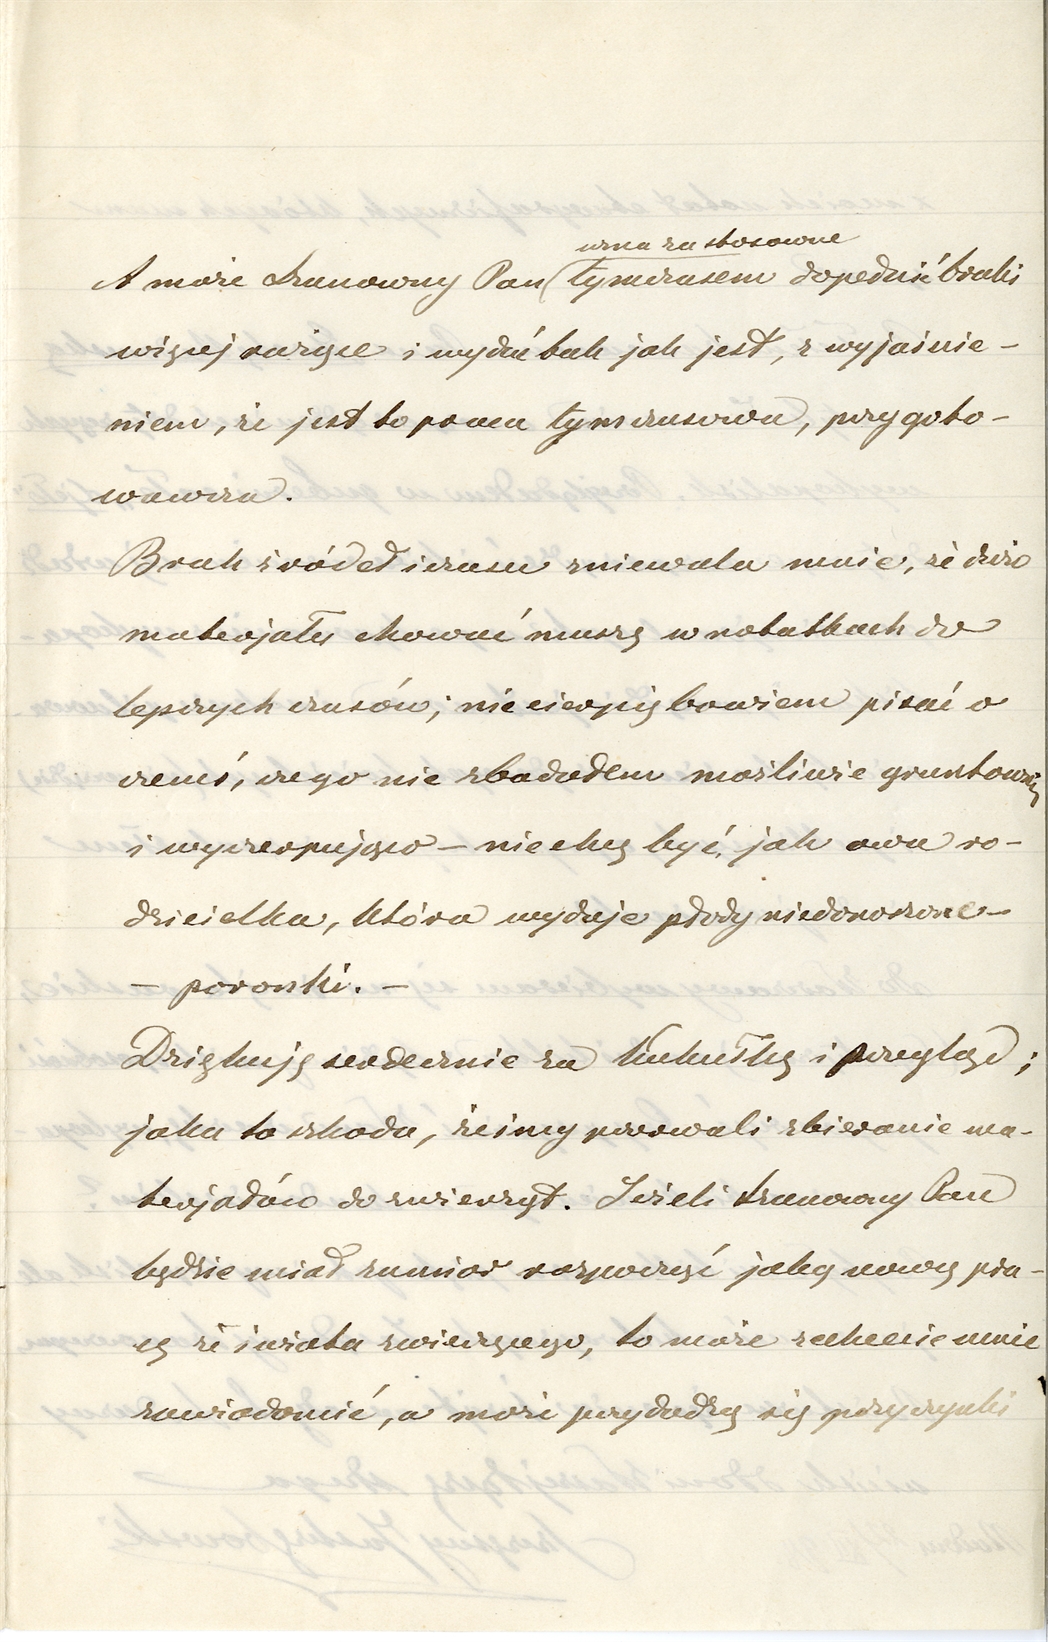 uzna za stosowne
A może Szanowny Pan (tymczasem dopełnić braki
więcej rażące i wydać tak jak jest, z wyjaśnie-
niem, że jest to praca tymczasowa, przygoto-
wawcza.
Brak źródeł i czasu zniewala mnie, że dużo
materjału chować muszę w notatkach do
lepszych czasów; nie cierpię bowiem pisać o
czemś, czego nie zbadałem możliwie gruntownie
i wyczerpująco – nie chcę być, jak owa ro-
dzicielka, która wydaje płody niedonoszone –
– poronki. –
Dziękuję serdecznie za Kukułkę i przegląd;
jaka to szkoda, żeśmy przerwali zbieranie ma-
terjałów do zwierząt. Jeżeli Szanowny Pan
będzie miał zamiar rozpocząć jaką nową pra-
cę ze świata zwierzęcego, to może zechce mnie
zawiadomić, a może przydadzą się przyczynki